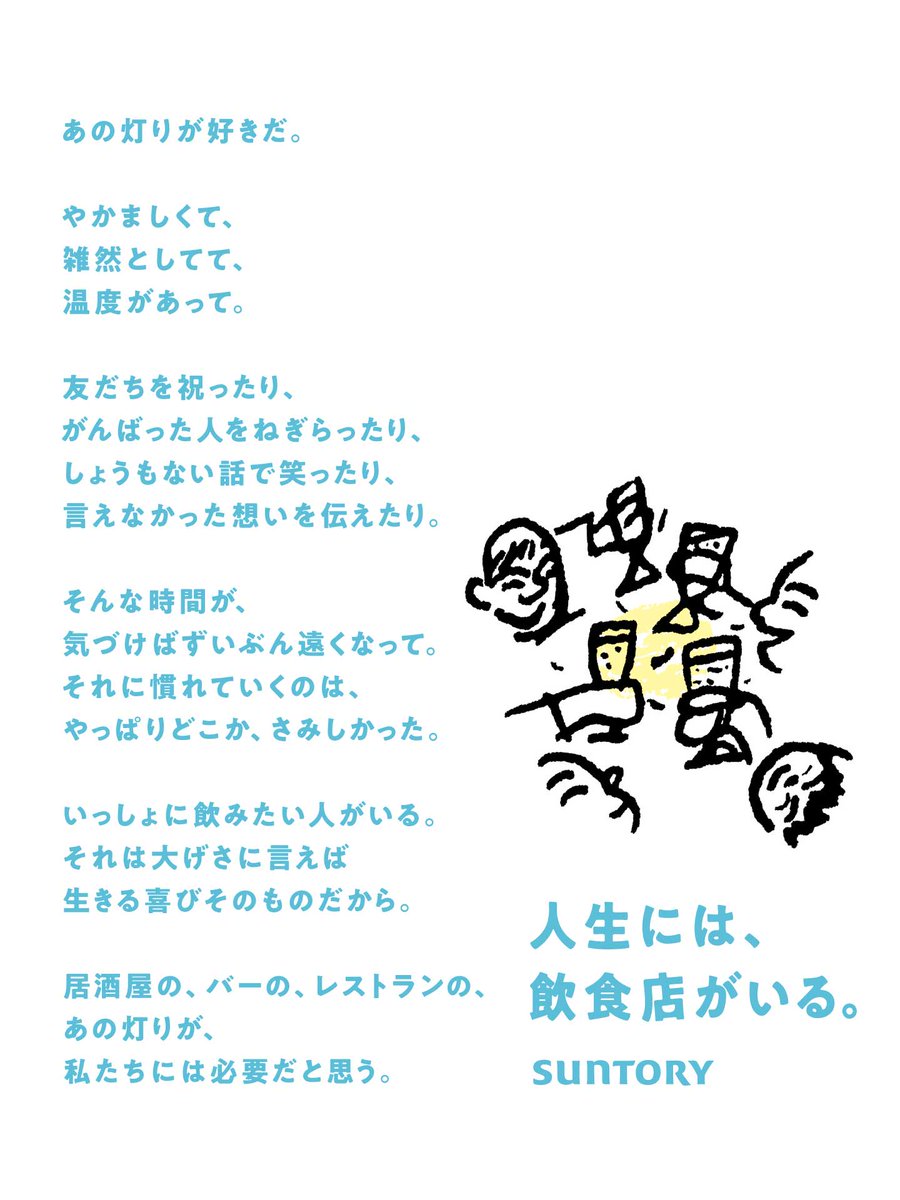 あの灯りが好きだ。
やかましくて、
雑然としてて、
温度があって。
友だちを祝ったり、
がんばった人をねぎらったり、
しょうもない話で笑ったり、
言えなかった想いを伝えたり。
そんな時間が、
気づけばずいぶん遠くなって。
それに慣れていくのは、
やっぱりどこか、さみしかった。
いっしょに飲みたい人がいる。
それは大げさに言えば
生きる喜びそのものだから。
居酒屋の、バーの、レストランの、
あの灯りが、
私たちには必要だと思う。
人生には、
飲食店がいる。
SUNTORY